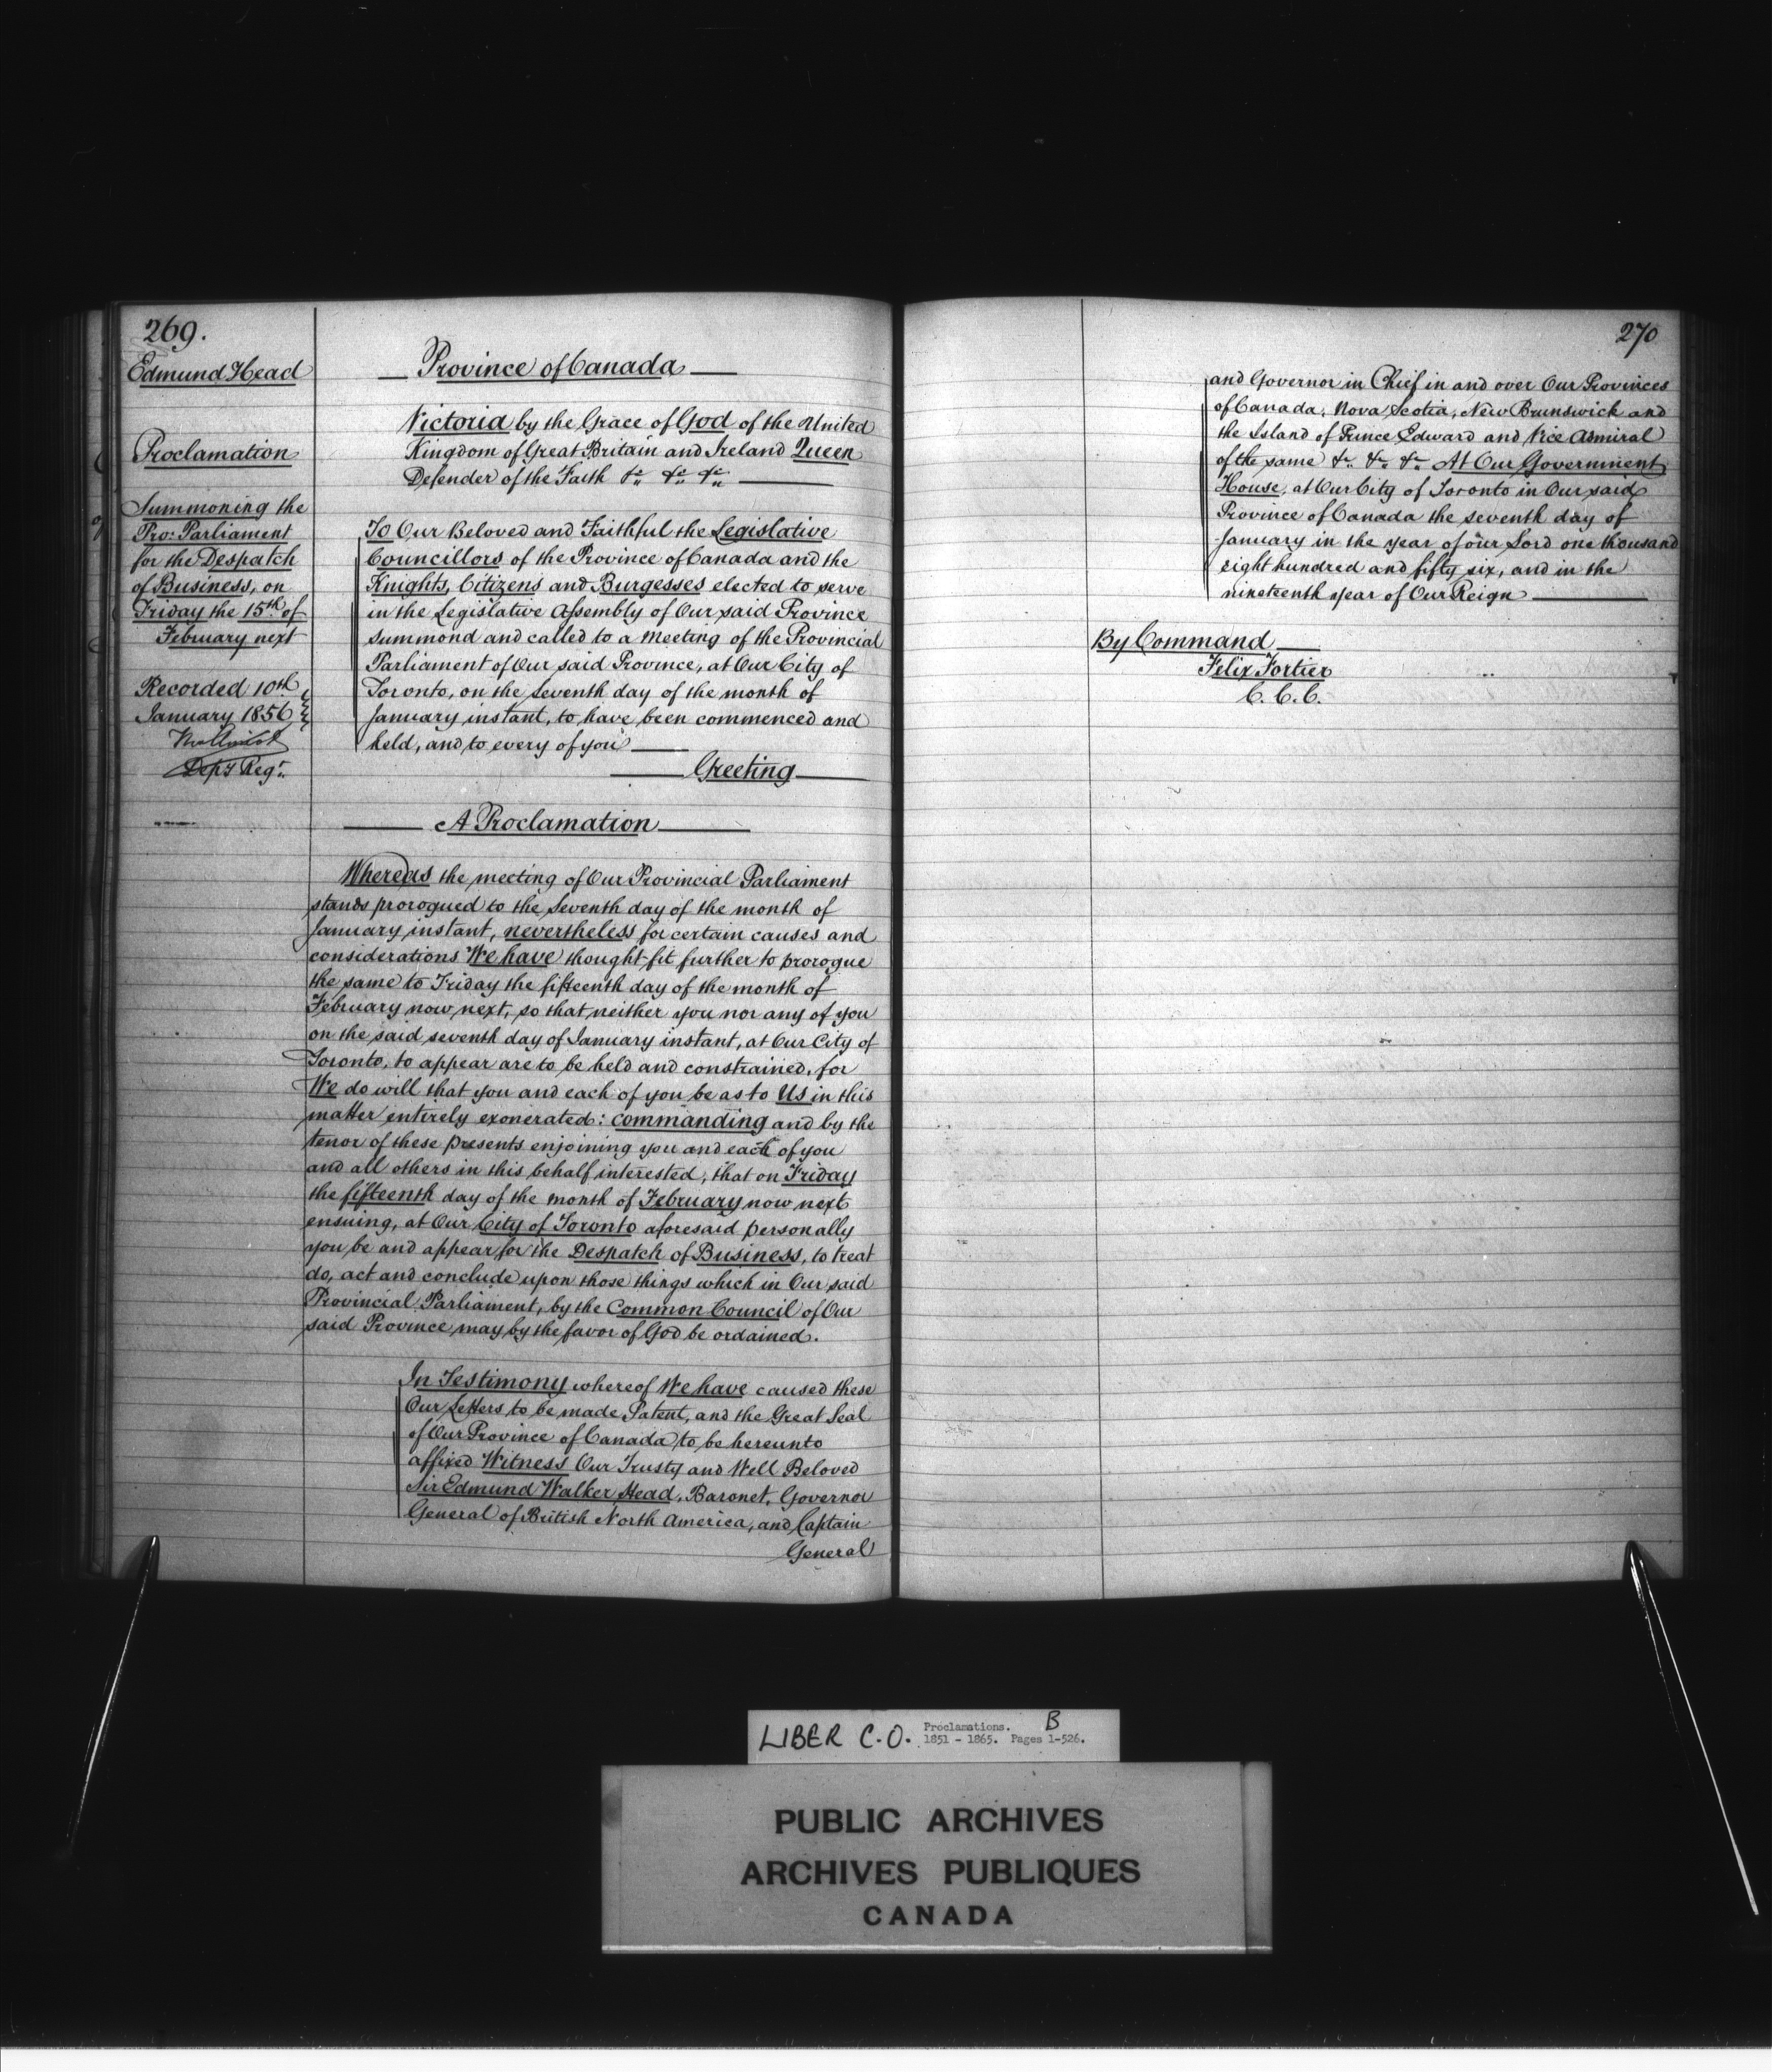 269.
Edmund Head
Proclamation
Summoning the
Pro: Parliament
for the Despatch
of Business, on
Friday the 15th of
February next
Recorded 10th
January 1856
Depy Regr.
Province of Canada
Victoria by the Grace of God of the United
Kingdom of Great Britain and Ireland Queen
Defender of the Faith &c &c &c
To Our Beloved and Faithful the Legislative
Councillors of the Province of Canada and the
Knights, Citizens and Burgesses elected to serve
in the Legislative Assembly of Our said Province
summond and called to a meeting of the Provincial
Parliament of Our said Province, at Our City of
Toronto, on the Seventh day of the month of
January instant, to have been commenced and
held, and to every of you
Greeting
A Proclamation
Whereas the meeting of Our Provincial Parliament
stands prorogued to the Seventh day of the month of
January instant, nevertheless for certain causes and
considerations We have thought fit further to prorogue
the same to Friday the fifteenth day of the month of
February now next, so that neither you nor any of you
on the said seventh day of January instant, at Our City of
Toronto, to appear are to be held and constrained, for
We do will that you and each of you be as to Us in this
matter entirely exonerated: commanding and by the
tenor of these presents enjoining you and each of you
and all others in this behalf interested, that on Friday
the fifteenth day of the month of February now next
ensuing, at Our City of Toronto aforesaid personally
you be and appear for the Despatch of Business, to treat
do, act and conclude upon those things which in Our said
Provincial Parliament, by the Common Council of Our
said Province may by the favor of God be ordained.
In Testimony whereof We have caused these
Our Letters to be made Patent, and the Great Seal
of Our Province of Canada to be hereunto
affixed Witness Our Trusty and Well Beloved
Sir Edmund Walker Head, Baronet, Governor
General of British North America, and Captain
General
270
and Governor in Chief in and over Our Provinces
of Canada, Nova Scotia, New Brunswick and
the Island of Prince Edward and Vice Admiral
of the same &c &c &c At Our Government
House, at Our City of Toronto in Our said
Province of Canada the seventh day of
January in the year of our Lord one thousand
eight hundred and fifty six, and in the
nineteenth year of Our Reign
By Command
Felix Fortier
C. C. C.
LIBER C.O. Proclamations. B
1851 - 1865. Pages 1-526.
PUBLIC ARCHIVES
ARCHIVES PUBLIQUES
CANADA